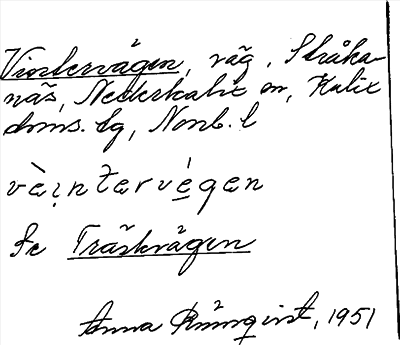 Vintervägen, väg, Stråka-
näs, Nederkalix sn, Kalix
doms. lg, Nonb. l
vèi̩ntarvé̱gen
Se Träskvägen
Anna Rönnqvist, 1951